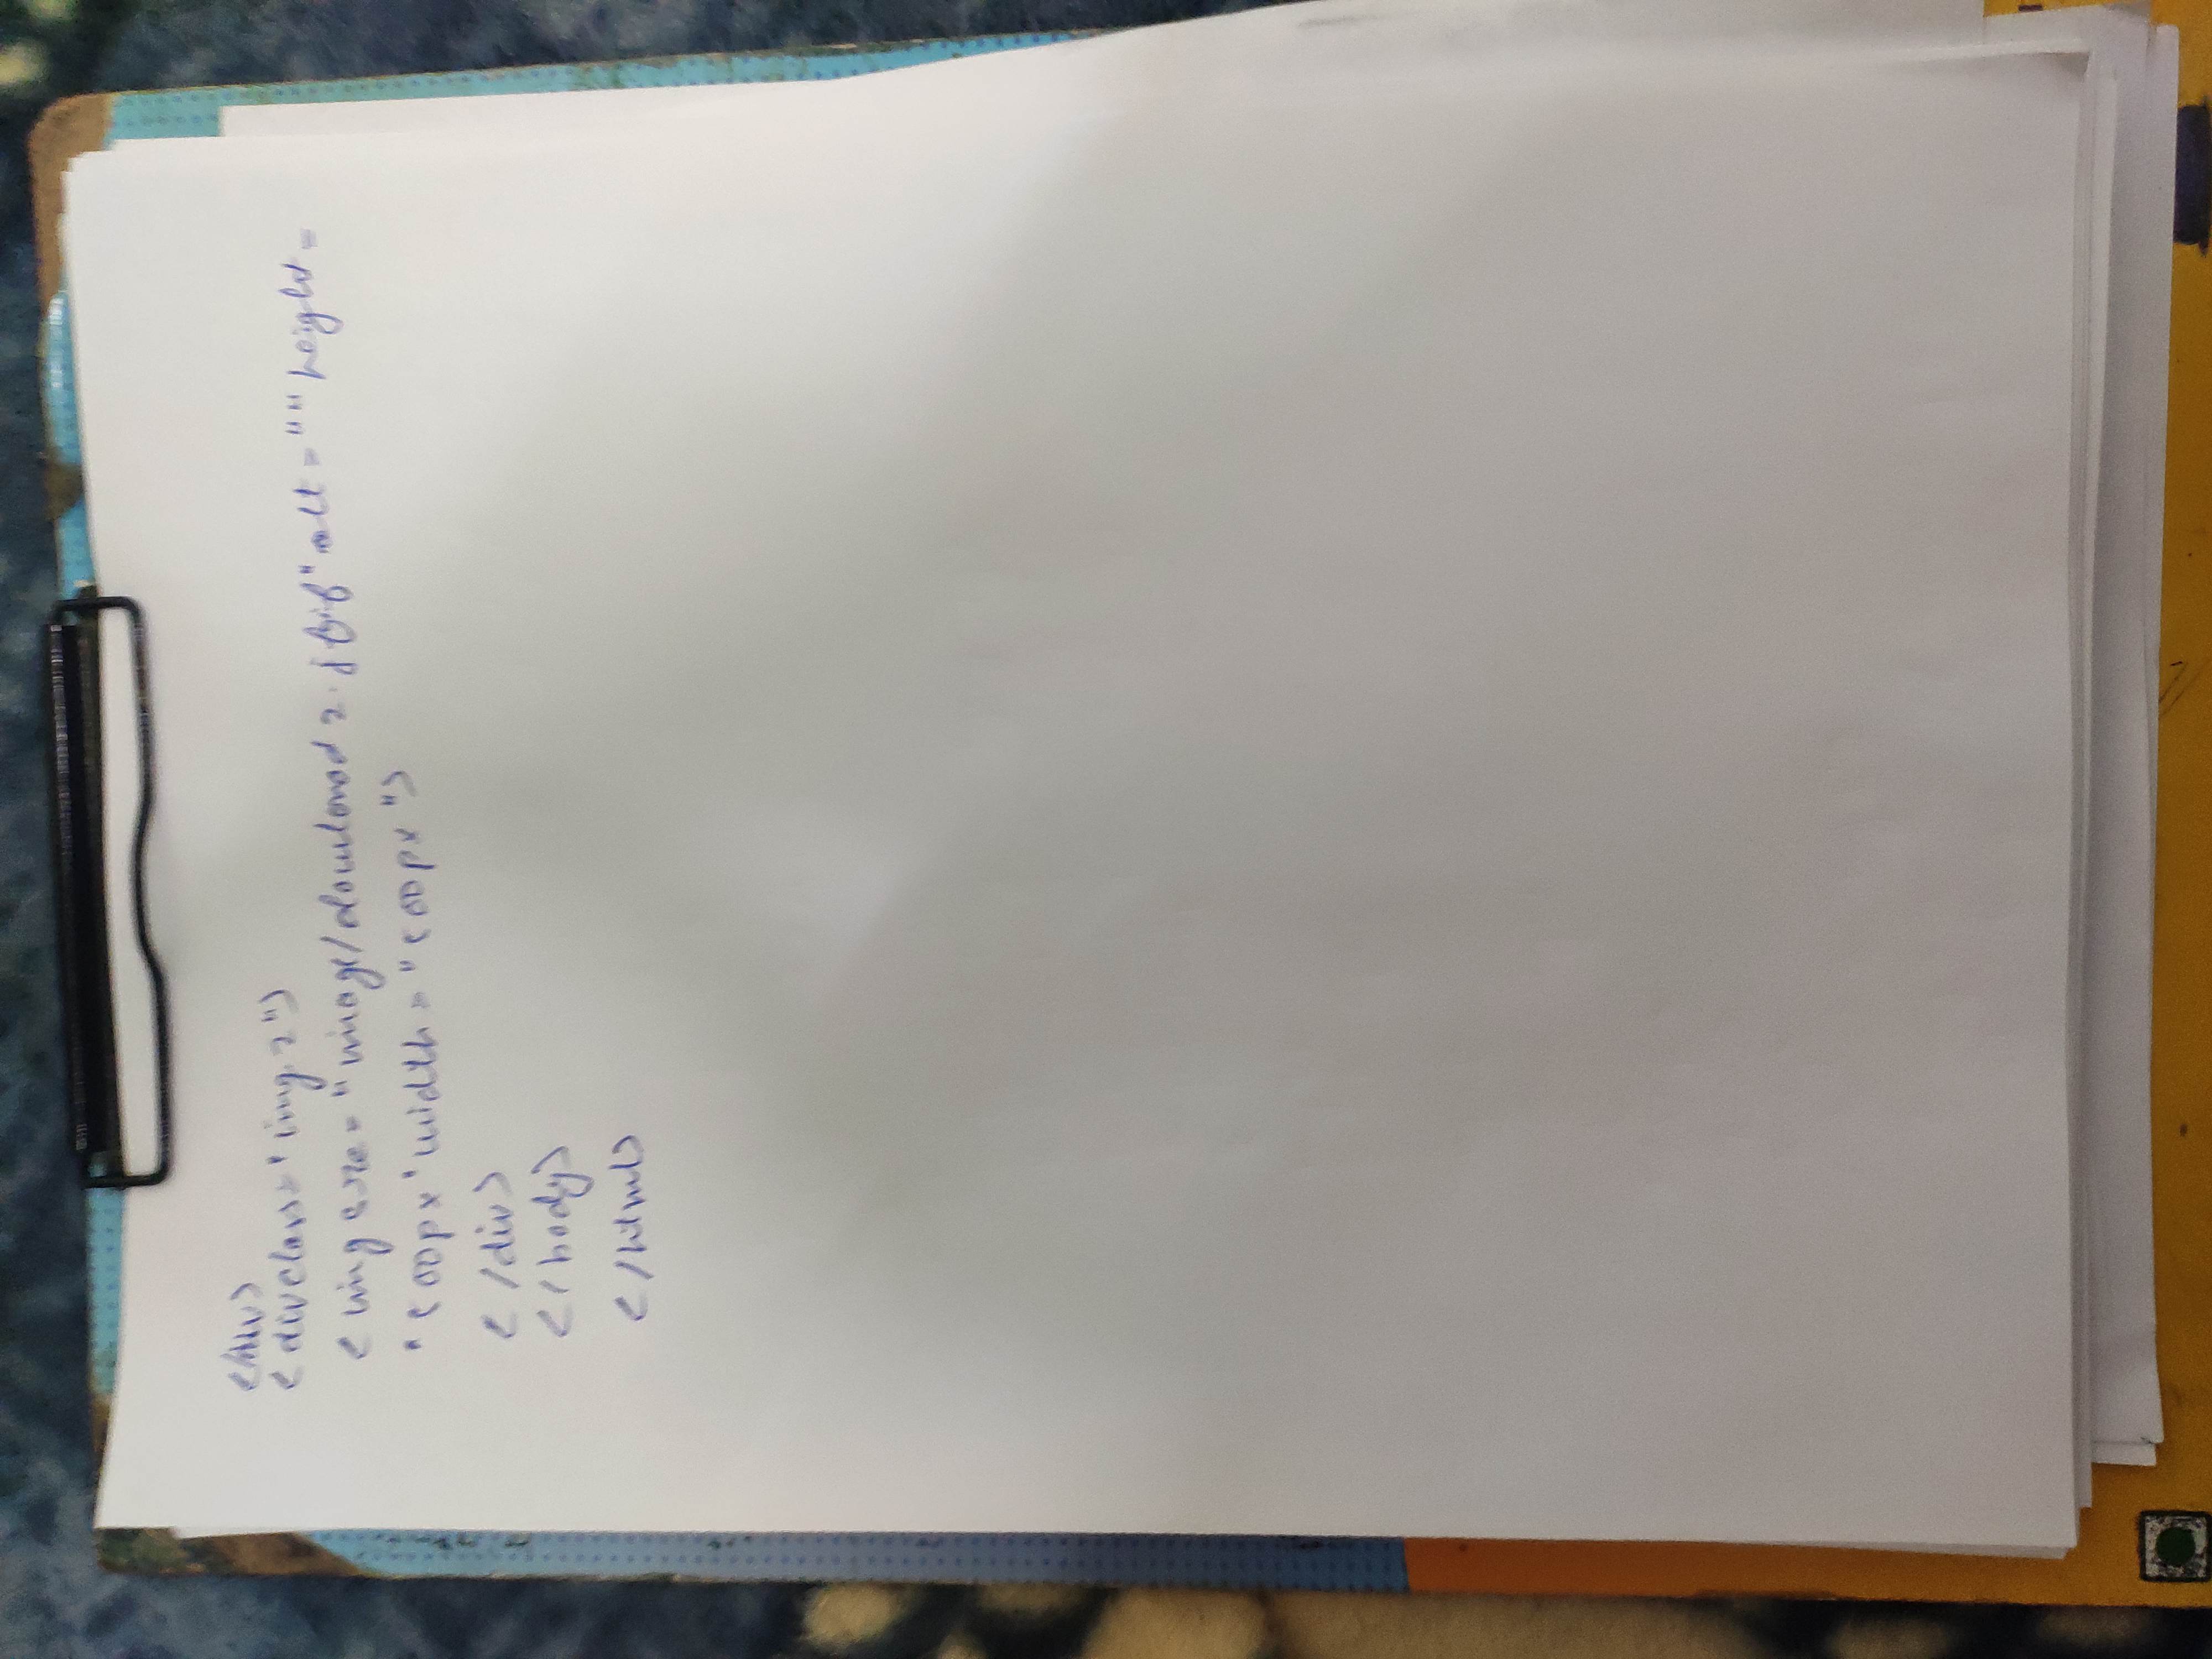 </div>
<div class="img2">
<img src="image/download 2.jfif" alt="" height=
"500px" width="500px">
</div>
</body>
</html>